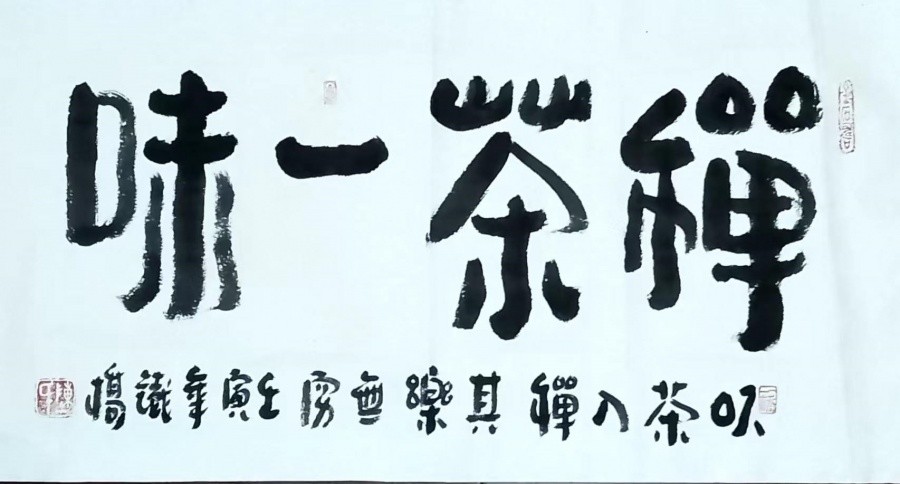 禪茶一味
以茶入禪其樂無窮壬寅年識